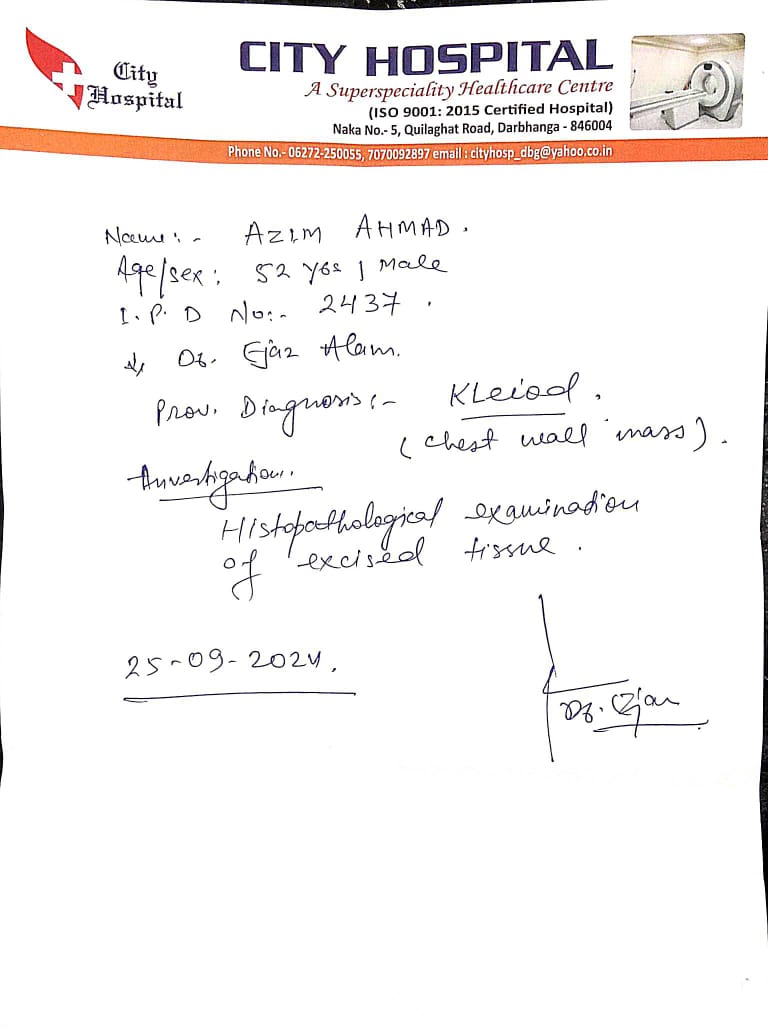 City
Hospital
CITY HOSPITAL
A Superspeciality Healthcare Centre
(ISO 9001: 2015 Certified Hospital)
Naka No.- 5, Quilaghat Road, Darbhanga - 846004
Phone No.- 06272-250055, 7070092897 email : cityhosp_dbg@yahoo.co.in
Name :- AZIM AHMAD.
Age/sex : 52 yrs / Male
I.P.D No:- 2437.
Dr. Ejaz Alam.
Prov. Diagnosis :- KLeiod.
(chest wall mass).
Investigation.
Histopathological examination
of excised tissue.
25-09-2024.
Dr. Ejaz